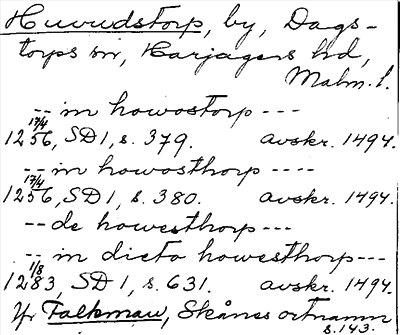 Huvudstorp, by, Dags-
torps sn, Harjagers hd,
Malm. l.
-- in howostorp ---
17/4 1256, SD 1, s. 379. avskr. 1494.
-- in howosthorp ----
17/4 1256, SD 1, s. 380. avskr. 1494.
-- de howesthorp ---
-- in dicto howesthorp ---
1/8 1283, SD 1, s. 631. avskr. 1494.
Jfr Falkman, Skånes ortnamn
s. 143.